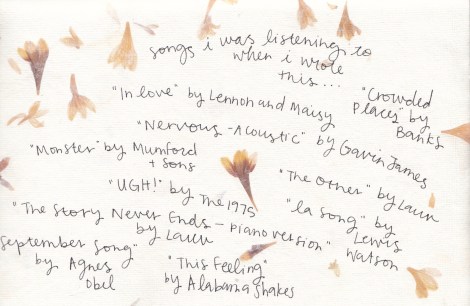 songs i was listening to
when i wrote
this...
"In love" by Lennon and Maisy
"Crowded
Places" by
Banks
"Nervous - Acoustic" by Gavin James
"Monster" by Mumford
+ Sons
"UGH!" by The 1975
"The Other" by Lauv
"The Story Never Ends - piano version"
by Lauv
"la song" by
Lewis
Watson
September Song"
by Agnes
Obel
"This Feeling"
by Alabama Shakes